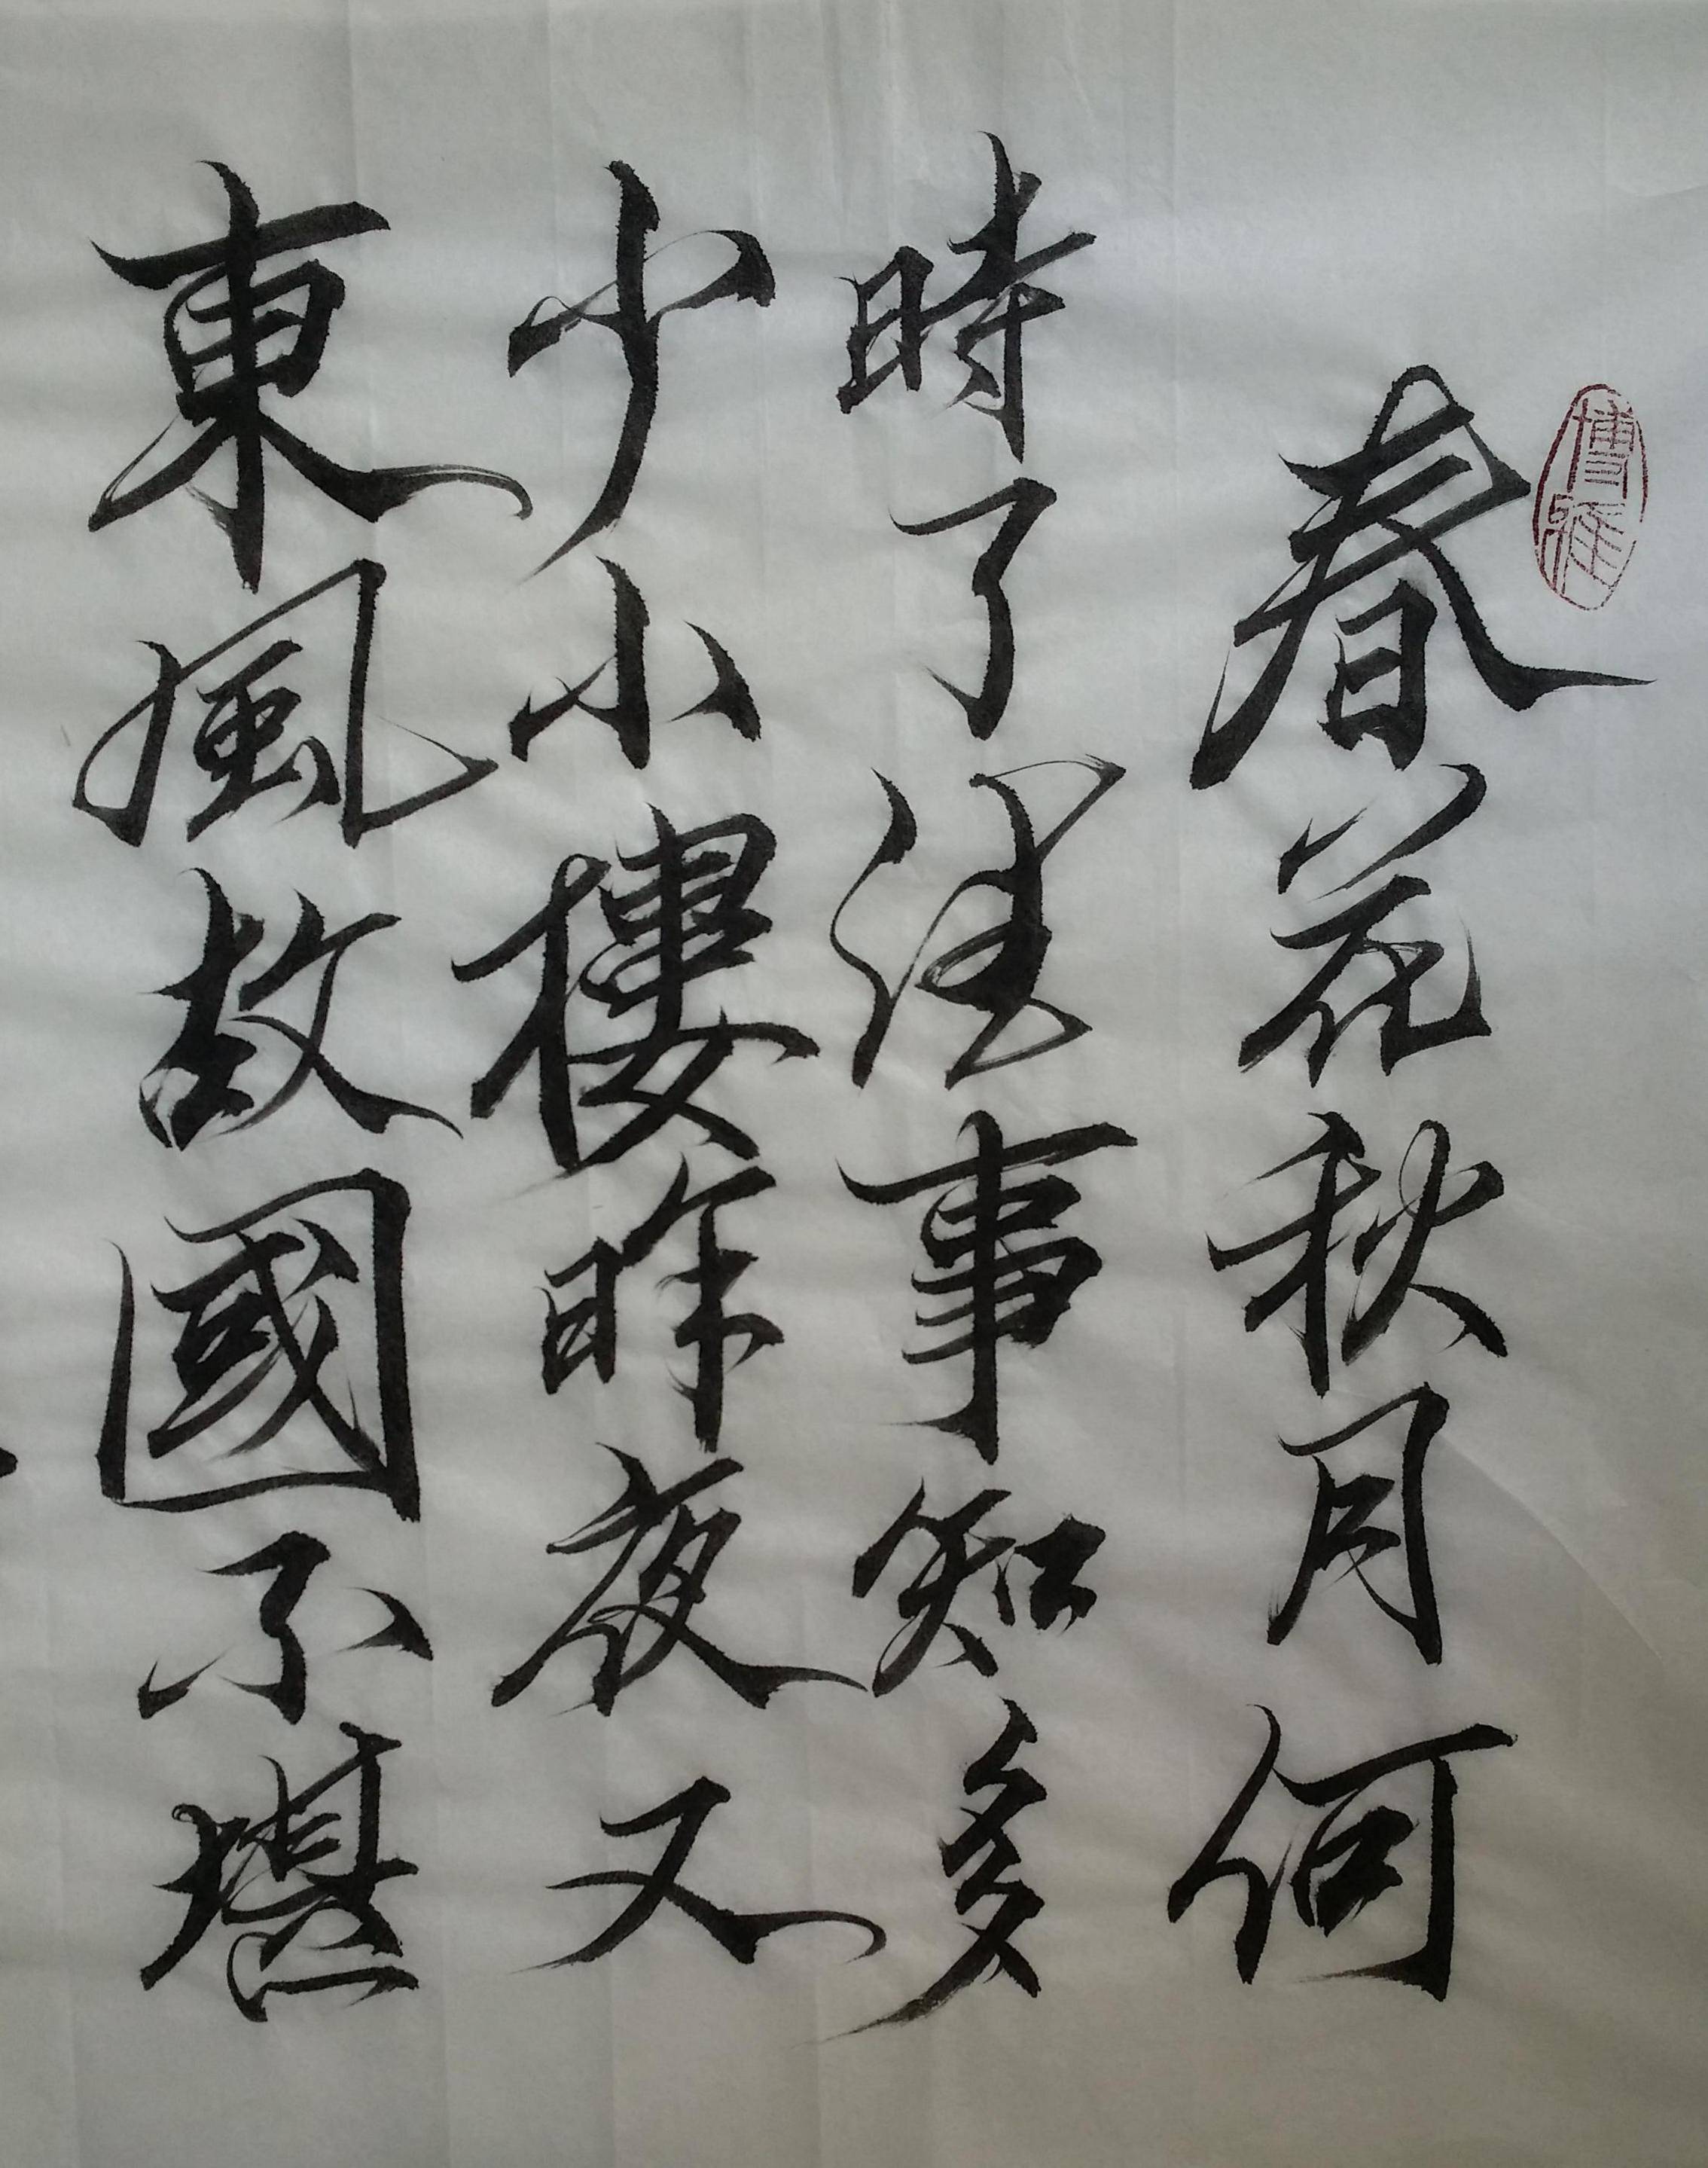 博雅
春花秋月何
時了往事知多
少小樓昨夜又
東風故國不堪